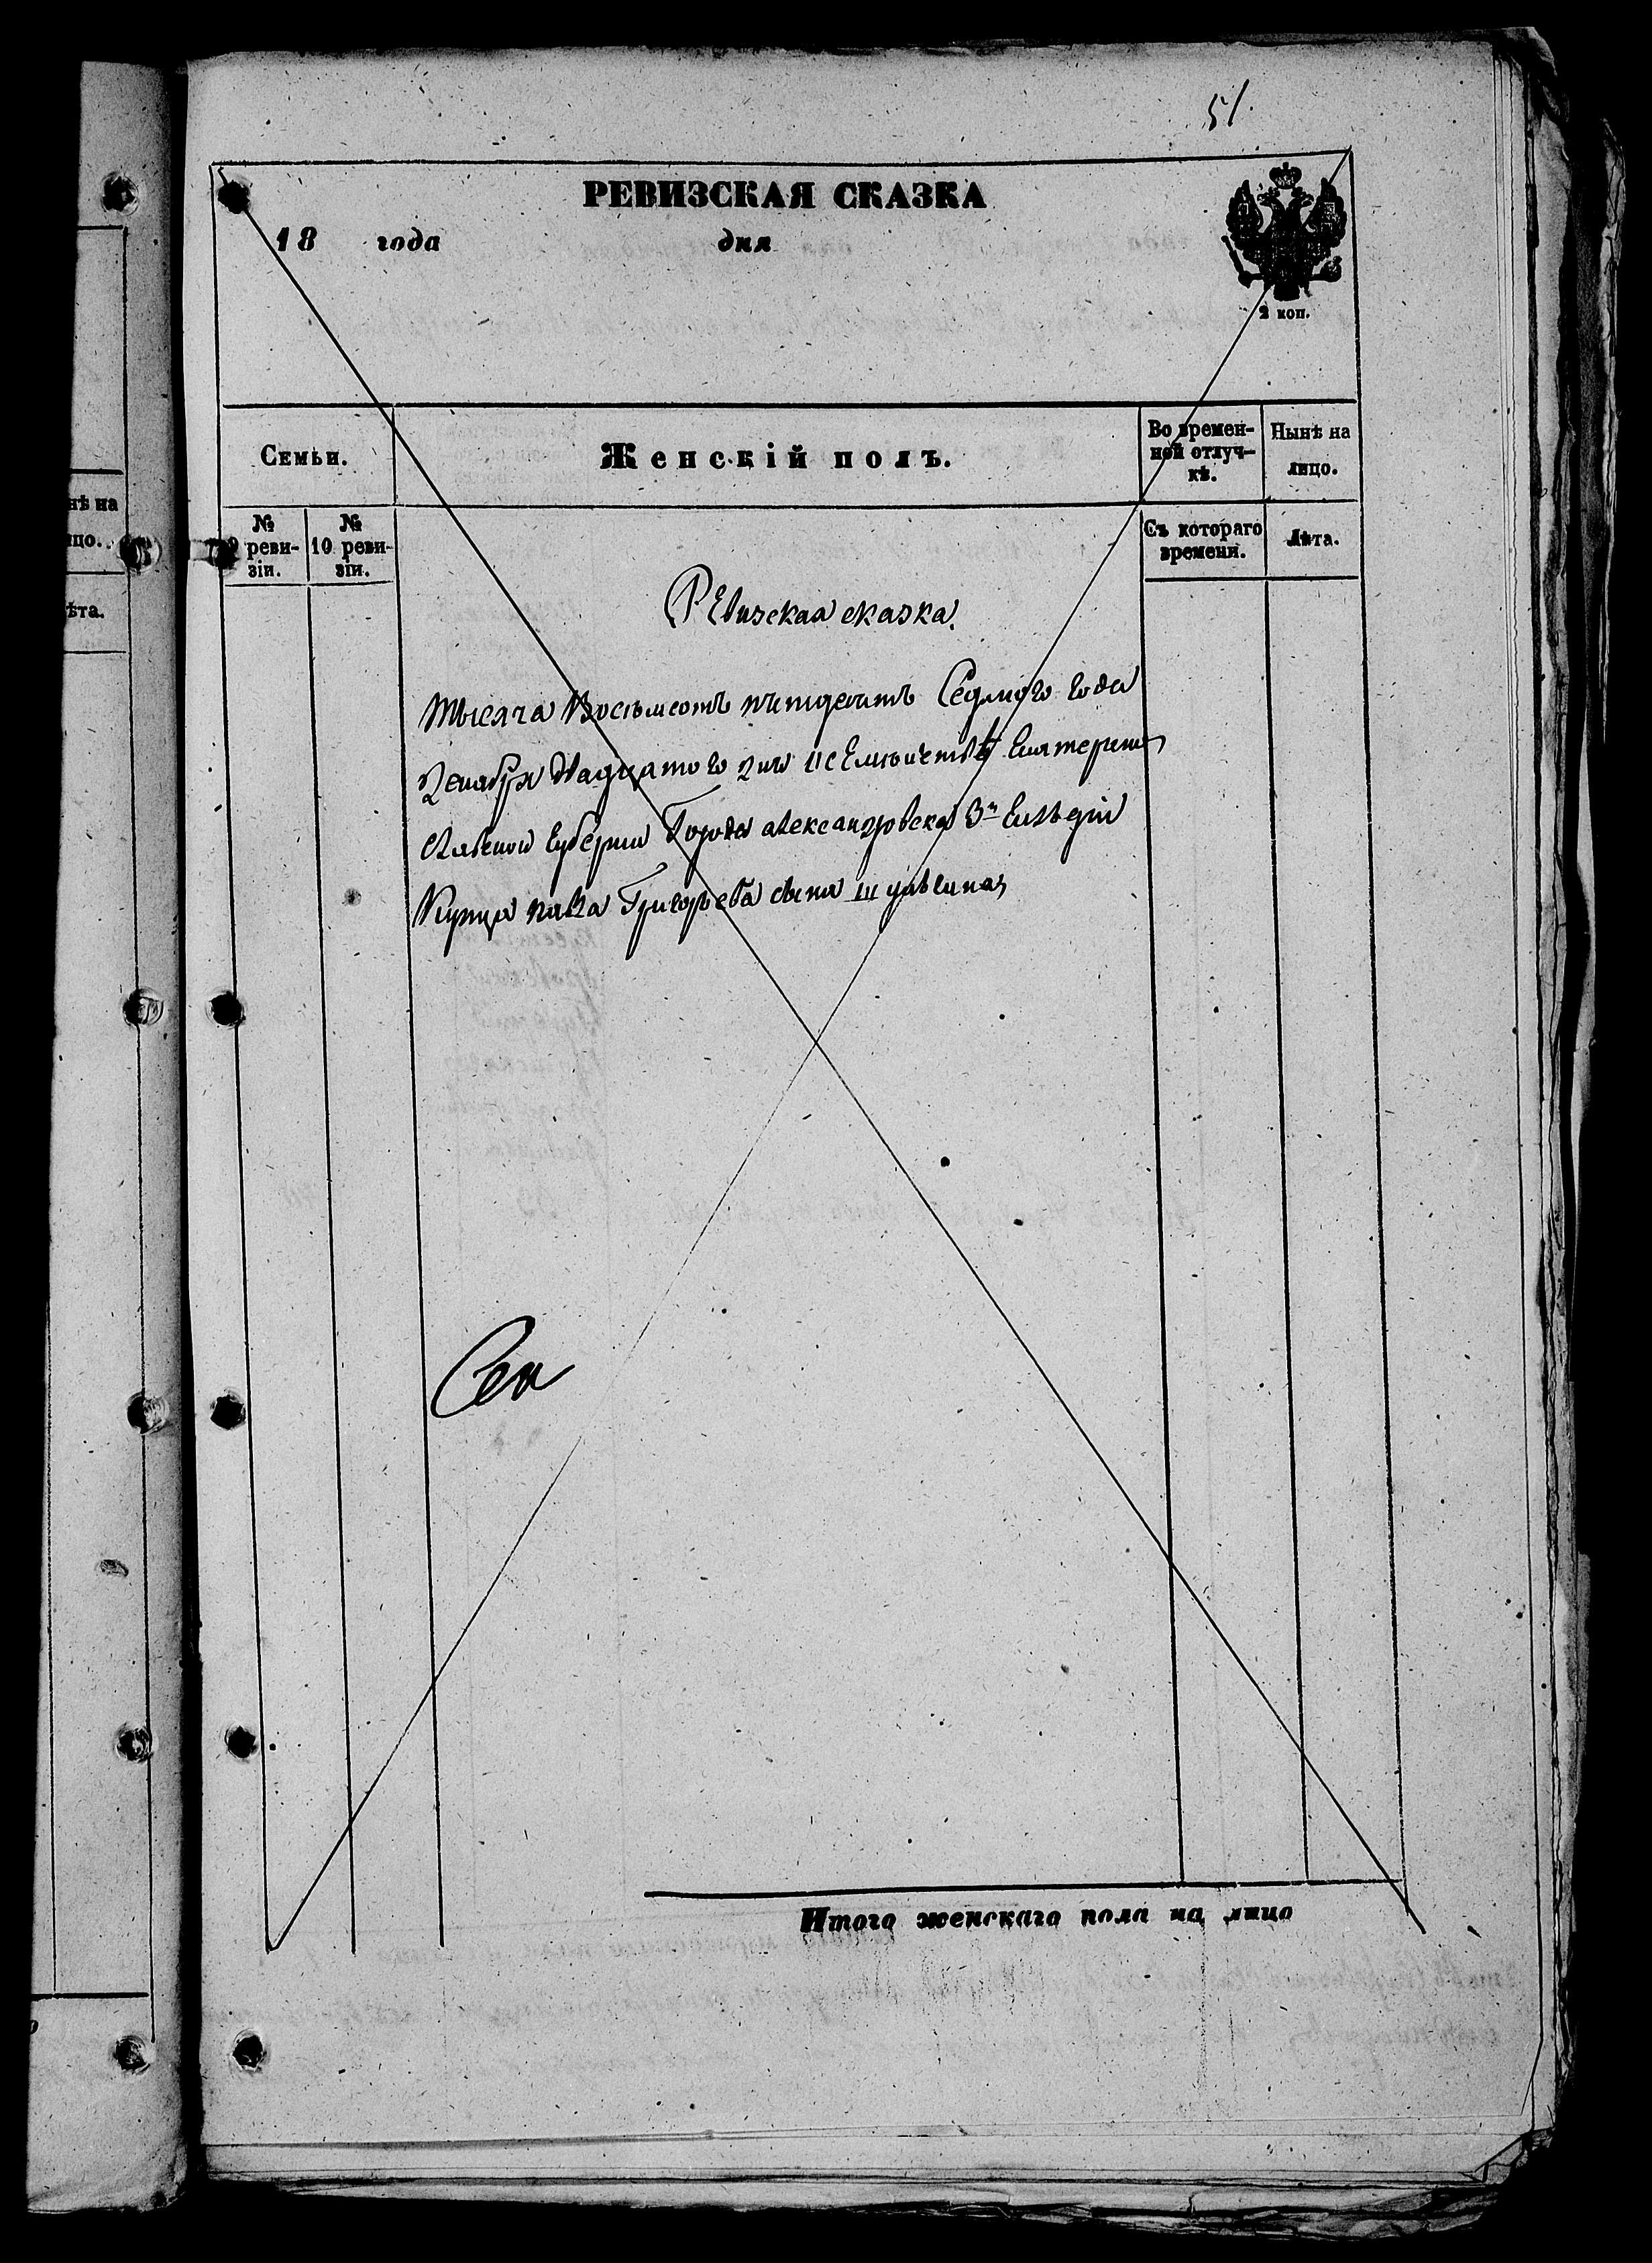 51.
РЕВИЗСКАЯ СКАЗКА
18 года дня
2 коп.
Семьи.
Женскій полъ.
Во времен-
ной отлуч-
кѣ.
Нынѣ на
лицо.
№
9 реви-
зіи.
№
10 реви-
зіи.
Съ котораго
времени.
Лѣта.
нѣ на
цо.
ѣта.
Ревизская сказка.
Тысяча Восъмсотъ Седмого года
Декабря двадцатого дня Екатерино
славской Губерніи Города александровска 3й Гилъдіи
Купца Григорьева сына
Итого женскаго пола на лицо